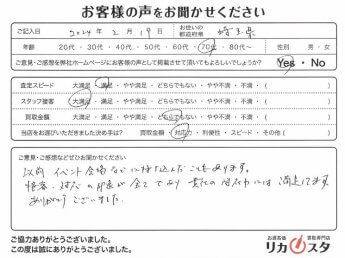 お客様の声をお聞かせください
ご記入日 2024年 2月 19日 お住いの都道府県 埼玉県
年齢 20代・30代・40代・50代・60代・70代・80代〜 性別 男・女
ご意見・ご感想を弊社ホームページにお客様の声として掲載させて頂いてもよろしいでしょうか? Yes・No
査定スピード 大満足・満足・やや満足・どちらでもない・やや不満・不満・( )
スタッフ接客 大満足・満足・やや満足・どちらでもない・やや不満・不満・( )
買取金額 大満足・満足・やや満足・どちらでもない・やや不満・不満・( )
当店をお選びいただきました決め手は? 買取金額・対応力・利便性・スピード・その他( )
ご意見・ご感想などぜひお聞かせください
以前イベント会場などに持ち込んだこともあります。
接客、対応の
が全てであり 貴社の
には満足してます。
ありがとうございました。
ご協力ありがとうございました。
この度は誠にありがとうございました。
お酒高価買取専門店
リカスタ